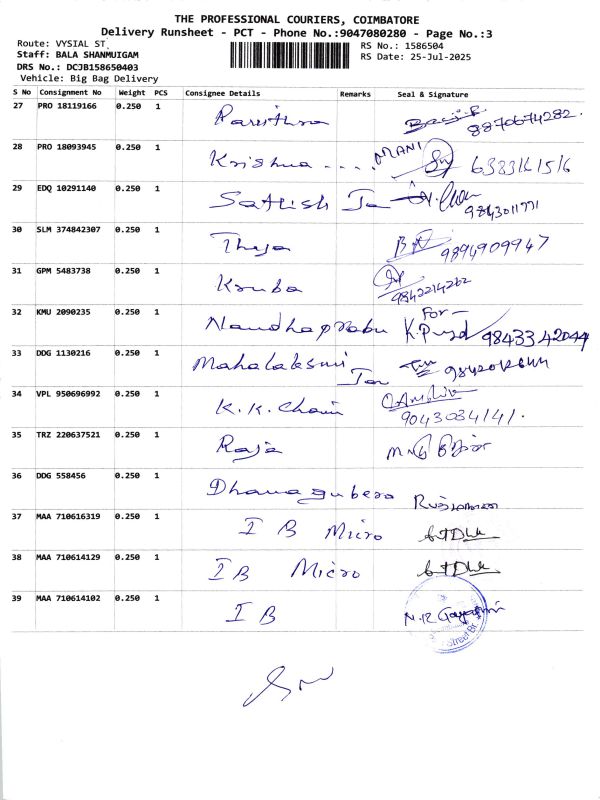 THE PROFESSIONAL COURIERS, COIMBATORE
Delivery Runsheet - PCT - Phone No.:9047080280 - Page No.:3
Route: VYSIAL ST
RS No.: 1586504
Staff: BALA SHANMUIGAM
RS Date: 25-Jul-2025
DRS No.: DCJB158650403
Vehicle: Big Bag Delivery
S No Consignment No Weight PCS Consignee Details Remarks Seal & Signature
27 PRO 18119166 0.250 1 8870674282.
28 PRO 18093945 0.250 1 Krishna .... MANI
29 EDQ 10291140 0.250 1 Sathish
30 SLM 374842307 0.250 1 Theja 9894909947
31 GPM 5483738 0.250 1 Kruba 9842214262
32 KMU 2090235 0.250 1 Nandhaprabu For - 98433 42044
33 DDG 1130216 0.250 1
34 VPL 950696992 0.250 1 K.K. 9043034141.
35 TRZ 220637521 0.250 1 Raja
36 DDG 558456 0.250 1
37 MAA 710616319 0.250 1 I B Micro
38 MAA 710614129 0.250 1 I B Micro
39 MAA 710614102 0.250 1 I B N.R Gayathri
Street Br.